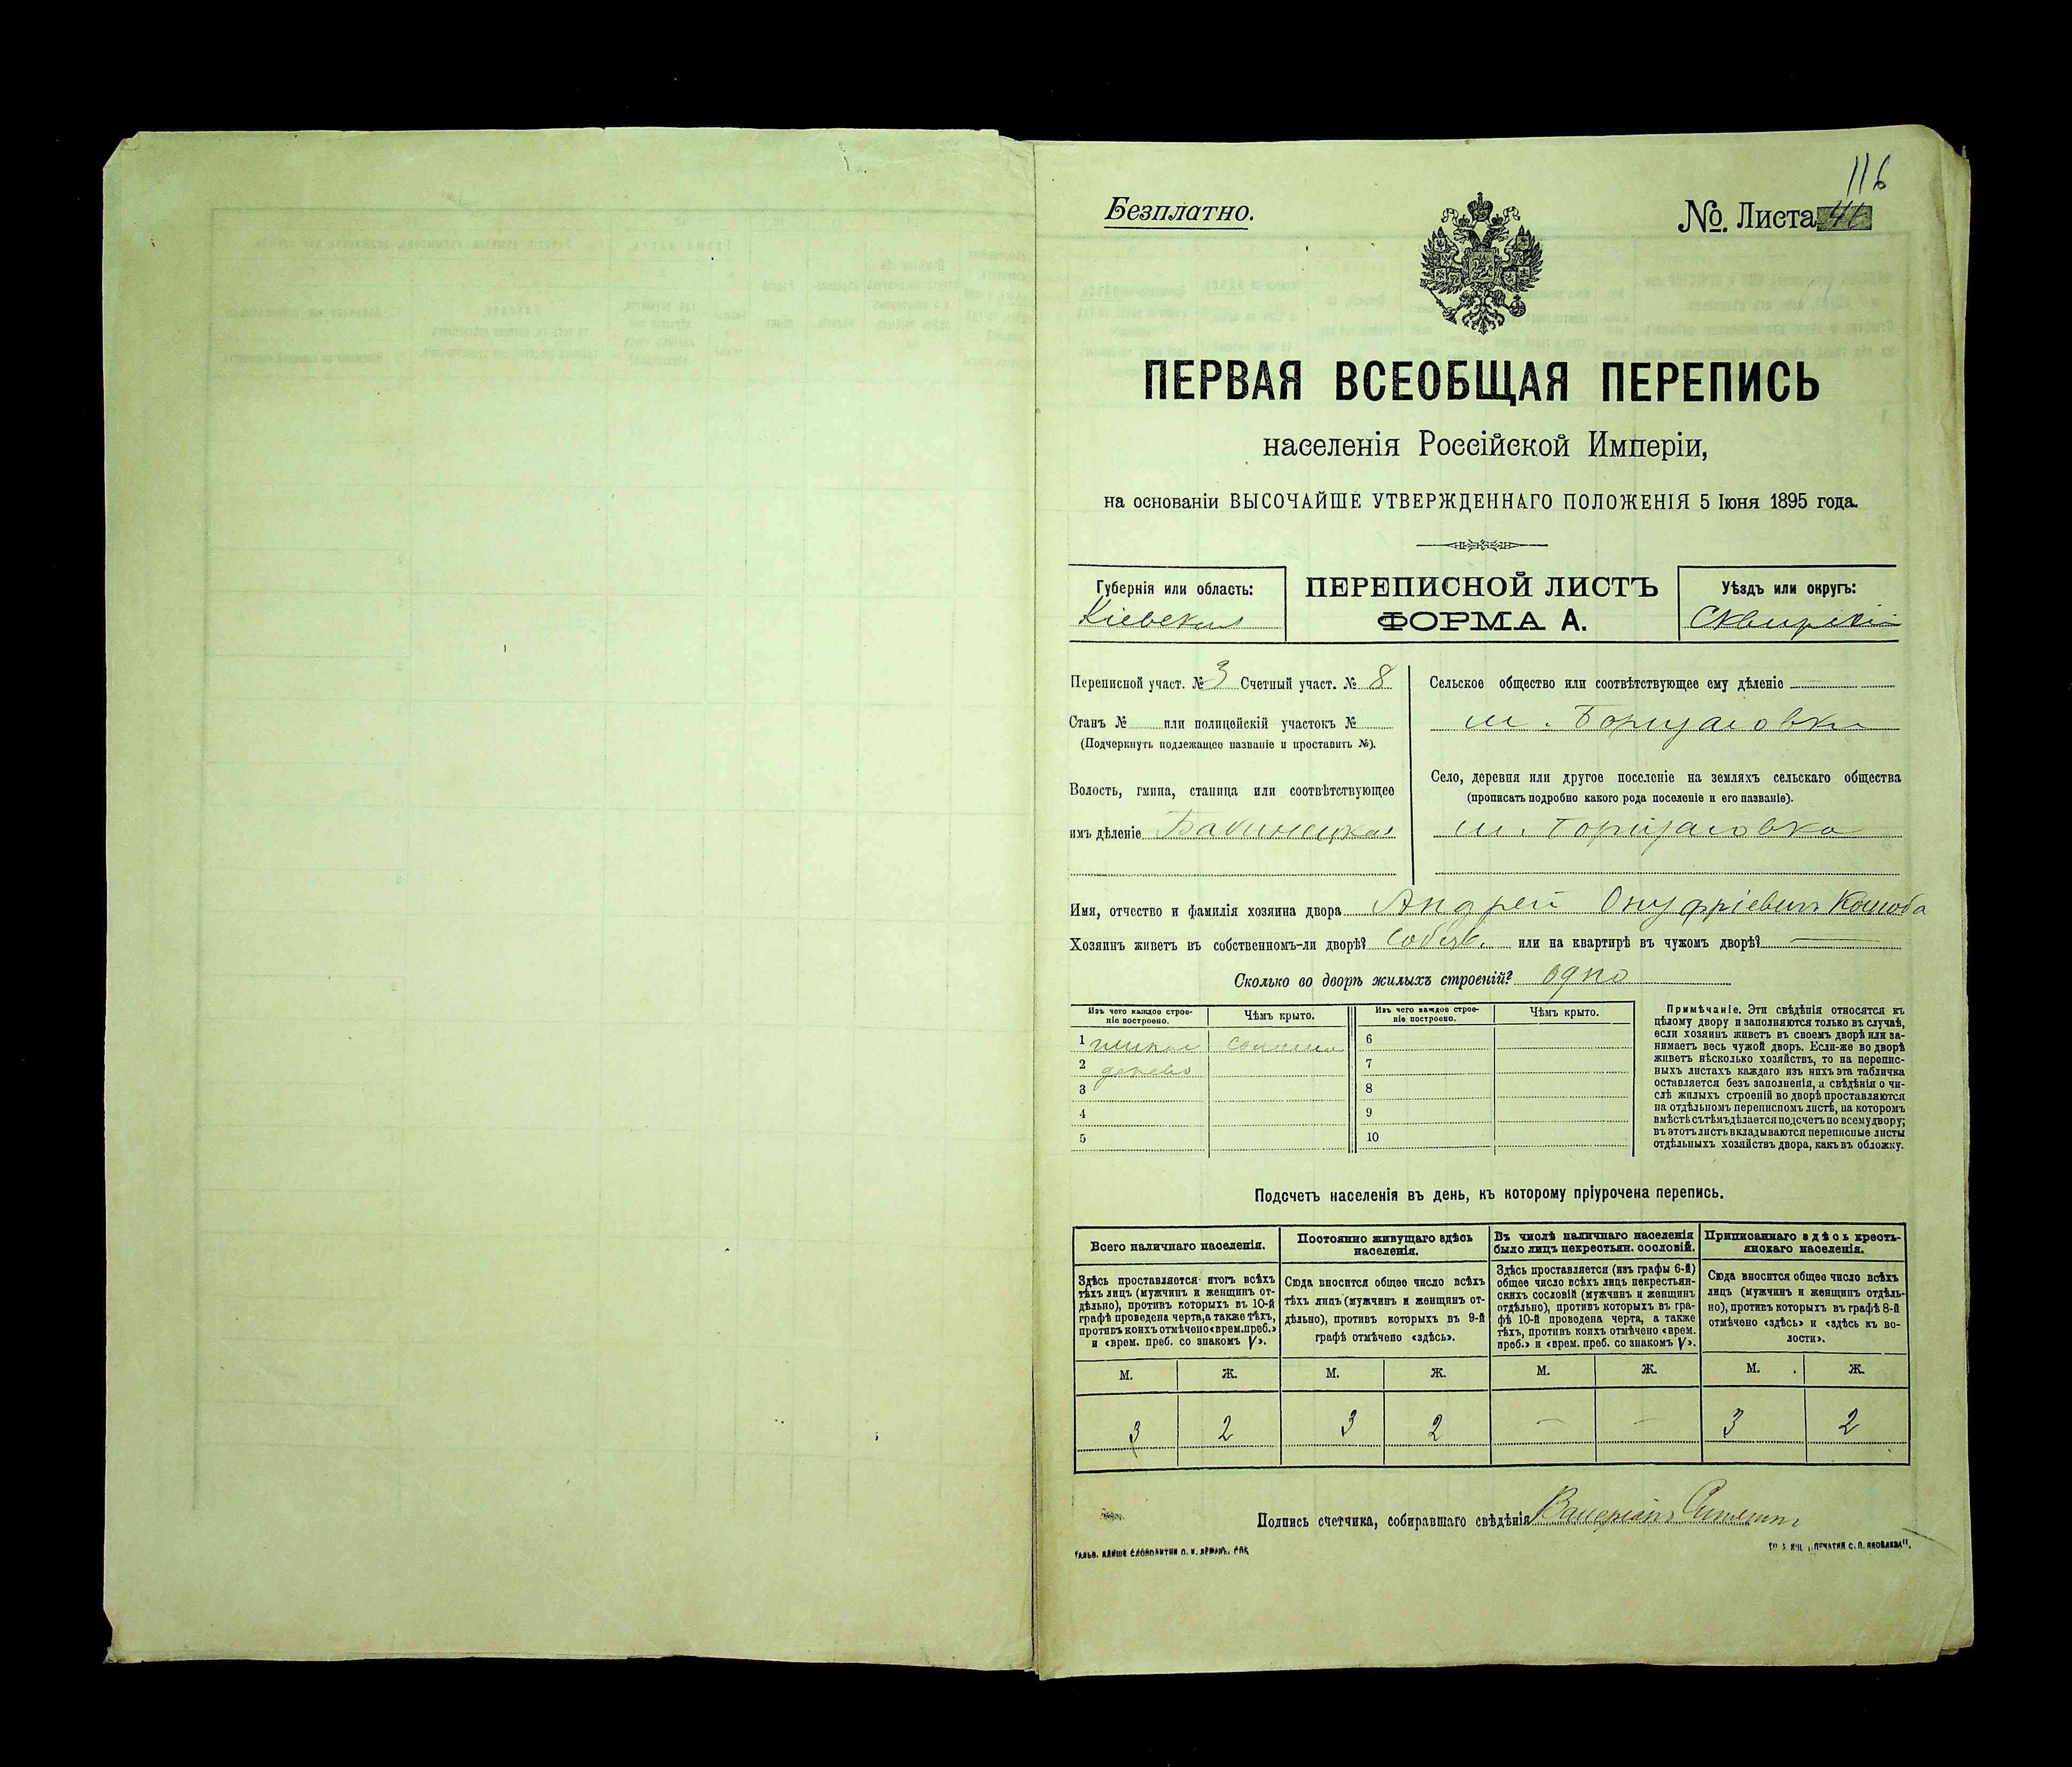 116
Безплатно.
№. Листа
ПЕРВАЯ ВСЕОБЩАЯ ПЕРЕПИСЬ
населенія Россійской Имперіи,
на основаніи ВЫСОЧАЙШЕ УТВЕРЖДЕННАГО ПОЛОЖЕНІЯ 5 Іюня 1895 года.
Губернія или область:
Кіевская
ПЕРЕПИСНОЙ ЛИСТЪ
ФОРМА А.
Уѣздъ или округъ:
Сквирскій
Переписной участ. № 3 Счетный участ. № 8
Станъ № или полицейскій участокъ №
(Подчеркнуть подлежащее названіе и проставить №).
Волость, гмина, станица или соотвѣтствующее
имъ дѣленіе
Сельское общество или соотвѣтствующее ему дѣленіе —
м. Борщаговка
Село, деревня или другое поселеніе на земляхъ сельскаго общества
(прописать подробно какого рода поселеніе и его названіе).
м. Борщаговка
Имя, отчество и фамилія хозяина двора Андрей Онуфріевичъ
Хозяинъ живетъ въ собственномъ-ли дворѣ? собств. или на квартирѣ въ чужомъ дворѣ? —
Сколько во дворѣ жилыхъ строеній? одно
Изъ чего каждое строе-
ніе построено.
Чѣмъ крыто.
Изъ чего каждое строе-
ніе построено.
Чѣмъ крыто.
1 солома
2 дерево
3
4
5
6
7
8
9
10
Примѣчаніе. Эти свѣдѣнія относятся къ
цѣлому двору и заполняются только въ случаѣ,
если хозяинъ живетъ въ своемъ дворѣ или за-
нимаетъ весь чужой дворъ. Если-же во дворѣ
живетъ нѣсколько хозяйствъ, то на перепис-
ныхъ листахъ каждаго изъ нихъ эта табличка
оставляется безъ заполненія, а свѣдѣнія о чи-
слѣ жилыхъ строеній во дворѣ проставляются
на отдѣльномъ переписномъ листѣ, на которомъ
вмѣстѣ съ тѣмъ дѣлается подсчетъ по всему двору;
въ этотъ листъ вкладываются переписные листы
отдѣльныхъ хозяйствъ двора, какъ въ обложку.
Подсчетъ населенія въ день, къ которому пріурочена перепись.
Всего наличнаго населенія.
Здѣсь проставляется итогъ всѣхъ
тѣхъ лицъ (мужчинъ и женщинъ от-
дѣльно), противъ которыхъ въ 10-й
графѣ проведена черта, а также тѣхъ,
противъ коихъ отмѣчено «врем. преб.»
и «врем. преб. со знакомъ V».
Постоянно живущаго здѣсь
населенія.
Сюда вносится общее число всѣхъ
тѣхъ лицъ (мужчинъ и женщинъ от-
дѣльно), противъ которыхъ въ 9-й
графѣ отмѣчено «здѣсь».
Въ числѣ наличнаго населенія
было лицъ некрестьян. сословій.
Здѣсь проставляется (изъ графы 6-й)
общее число всѣхъ лицъ некрестьян-
скихъ сословій (мужчинъ и женщинъ
отдѣльно), противъ которыхъ въ гра-
фѣ 10-й проведена черта, а также
тѣхъ, противъ коихъ отмѣчено «врем.
преб.» и «врем. преб. со знакомъ V».
Приписаннаго здѣсь кресть-
янскаго населенія.
Сюда вносится общее число всѣхъ
лицъ (мужчинъ и женщинъ отдѣль-
но), противъ которыхъ въ графѣ 8-й
отмѣчено «здѣсь» и «здѣсь къ во-
лости».
М. Ж. М. Ж. М. Ж. М. Ж.
3 2 3 2 — — 3 2
Подпись счетчика, собиравшаго свѣдѣнія Валеріанъ